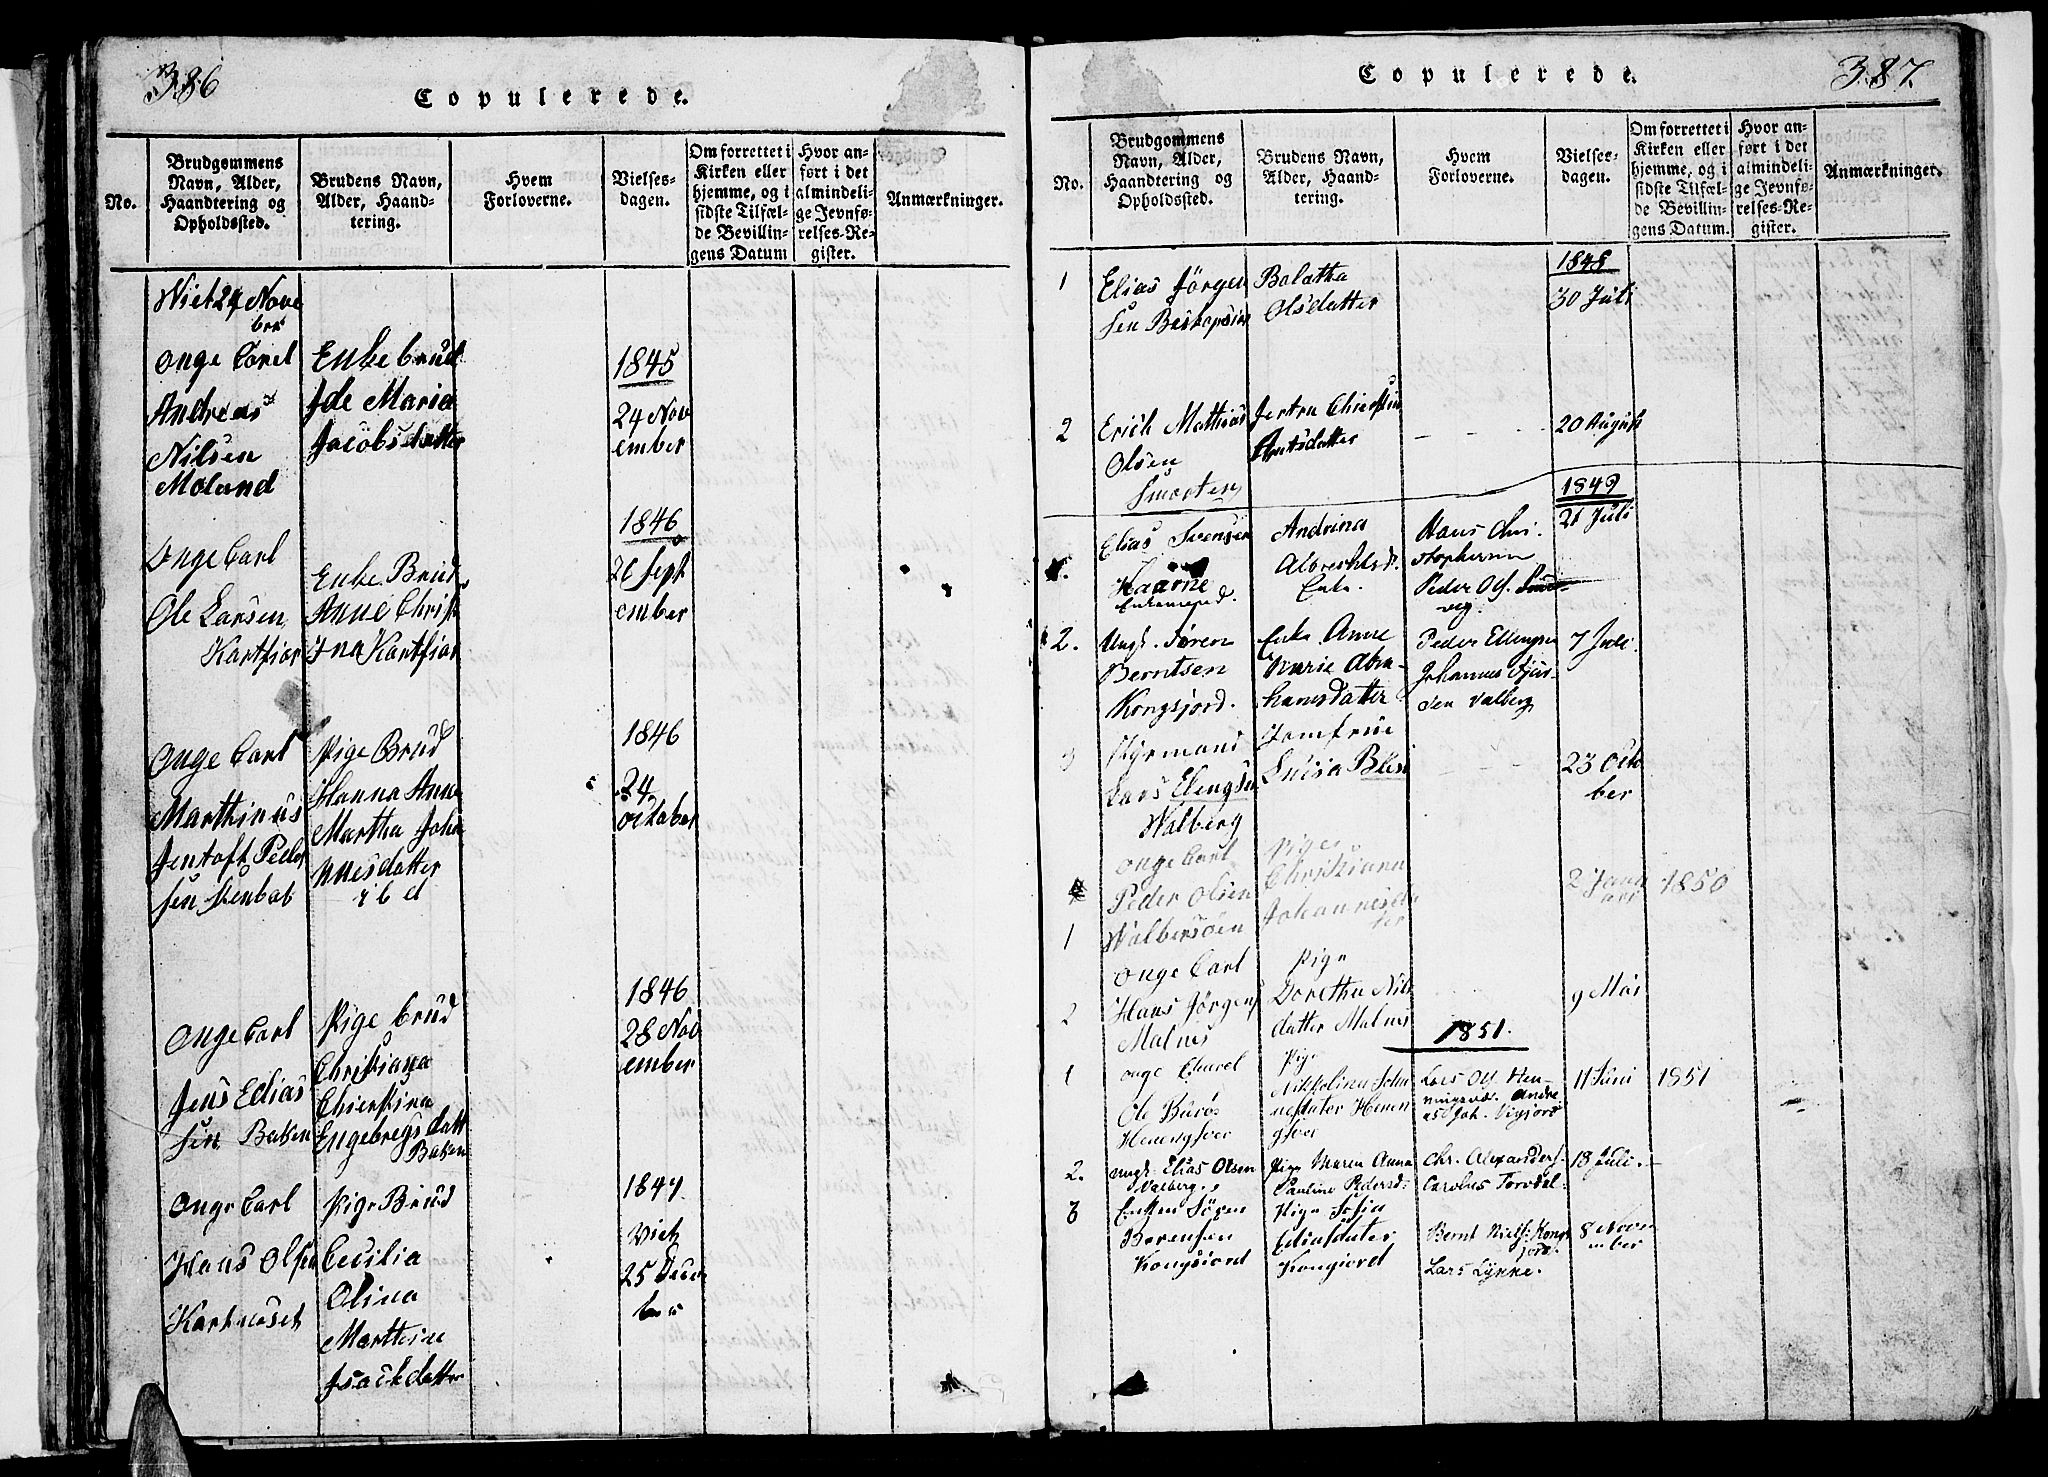 386
Copulerede.
No.
Brudgommens Navn, Alder, Haandtering og Opholdssted.
Brudens Navn, Alder, Haandtering.
Hvem Forloverne.
Vielsesdagen.
Om forrettet i Kirken eller hjemme, og i sidste Tilfælde Bevillingens Datum
Hvor anført i det almindelige Jevnførelses-Register.
Anmærkninger.
Viet 24 Nove
ber
onge Carel
Andreas
Nilsen
Moland
Enke brud
Ide Maria
Jacobsdatter
1845
24 Nov
ember
Onge Carl
Ole Larsen
Kartfior
Enke Brud
Anne Christ
Ina Kartfior
1846
26 Sept
ember
Onge Carl
Marthinus
Jentoft Peder
sen
Pige Brud
Hanna Anne
Martha Joha
nnesdatter
ibd
1846
24
octaber
Onge Carl
Jens Edias
sen Baken
Pige brud
Christiana
Chierstina
Engebregs datt
Baken
1846
28 Nov
ember
Onge Carl
Hans Olsen
Pige Brud
Cecilia
Olina
Marthin
Isack datter
1847
Viet
25 Dece
ber
387.
Copulerede.
No.
Brudgommens Navn, Alder, Haandtering og Opholdssted.
Brudens Navn, Alder, Haandtering.
Hvem Forloverne.
Vielsesdagen.
Om forrettet i Kirken eller hjemme, og i sidste Tilfælde Bevillingens Datum.
Hvor anført i det almindelige Jevnførelses-Register.
Anmærkninger.
1
Elias Jörgen
sen
Balatha
Olsdatter
1848
30 Juli
2
Erich Mathias
Olsen
Smorten
Arntsdatter
20 August
1849
Elias Svensen
Haarne
Enkemand.
Andrina
Albrechtsd.
Enke.
Hans Chri
stophersen
Peder Ols.
21 Juli
2.
Ungk. Sören
Berntsen
Kongsjord.
Enke Anne
Marie Abra
hamsdatter
Peder Ellingsen
Johannes
Valberg
7 Juli
3
Styrmand
Lars Elingsen
Walberg
Jomfrue
Luisa
23 Octo
ber
1
onge Carl
Peder Olsen
Walbersöen
Pige
Christiana
Johannesda
ter
2 Janu
ar
1850
2
onge Carl
Hans Jörgens
Malnes
Pige
Dorethea Nils
datter Malnes
9 Mai
1851.
1
onge Charel
Ole
Henngsver
Pige
Nikkolina Joha
nesdater Henen
gsver
Lars Ols. Hen
ningsvæ. Andre
as Joh. Vigjord
11 Juni
1851
2.
Ungk. Elias Olsen
Valberg.
Pige Maren Anna
Pauline Pedersd.
Chr. Alexanders.
Carolus Torvdal
18 Juli.
3
Enkem Sören
Berensen
Kongsiord
Pige Sofia
Eliasdater
Kongiord
Bernt Niels. Kongs
jord.
Lars Lykke.
8 Nove
mber